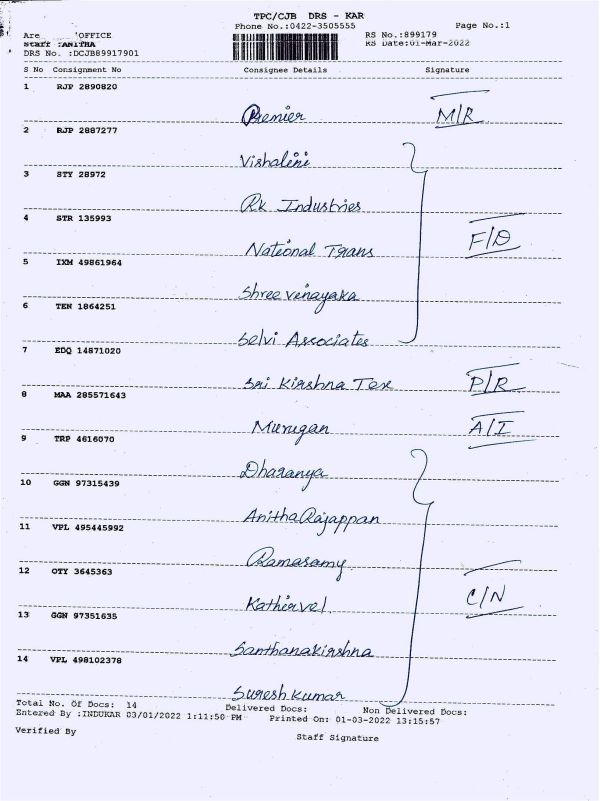 TPC/CJB DRS - KAR
Phone No.:0422-3505555
Page No.:1
Are OFFICE
RS No.:899179
Staff :ANITHA
RS Date:01-Mar-2022
DRS No. :DCJB89917901
S No Consignment No Consignee Details Signature
1 RJP 2890820
Premier M/R
2 RJP 2887277
Vishalini
3 STY 28972
RK Industries
4 STR 135993
National Trans F/D
5 IXM 49861964
Shree venayaka
6 TEN 1864251
Selvi Associates
7 EDQ 14871020
Sri Kirshna Tex P/R
8 MAA 285571643
Murugan A/I
9 TRP 4616070
Dharanya
10 GGN 97315439
Anitha Rajappan
11 VPL 495445992
Ramasamy
12 OTY 3645363
Kathirvel C/N
13 GGN 97351635
Santhanakirshna
14 VPL 498102378
Suresh kumar
Total No. Of Docs: 14 Delivered Docs: Non Delivered Docs:
Entered By :INDUKAR 03/01/2022 1:11:50 PM Printed On: 01-03-2022 13:15:57
Verified By Staff Signature